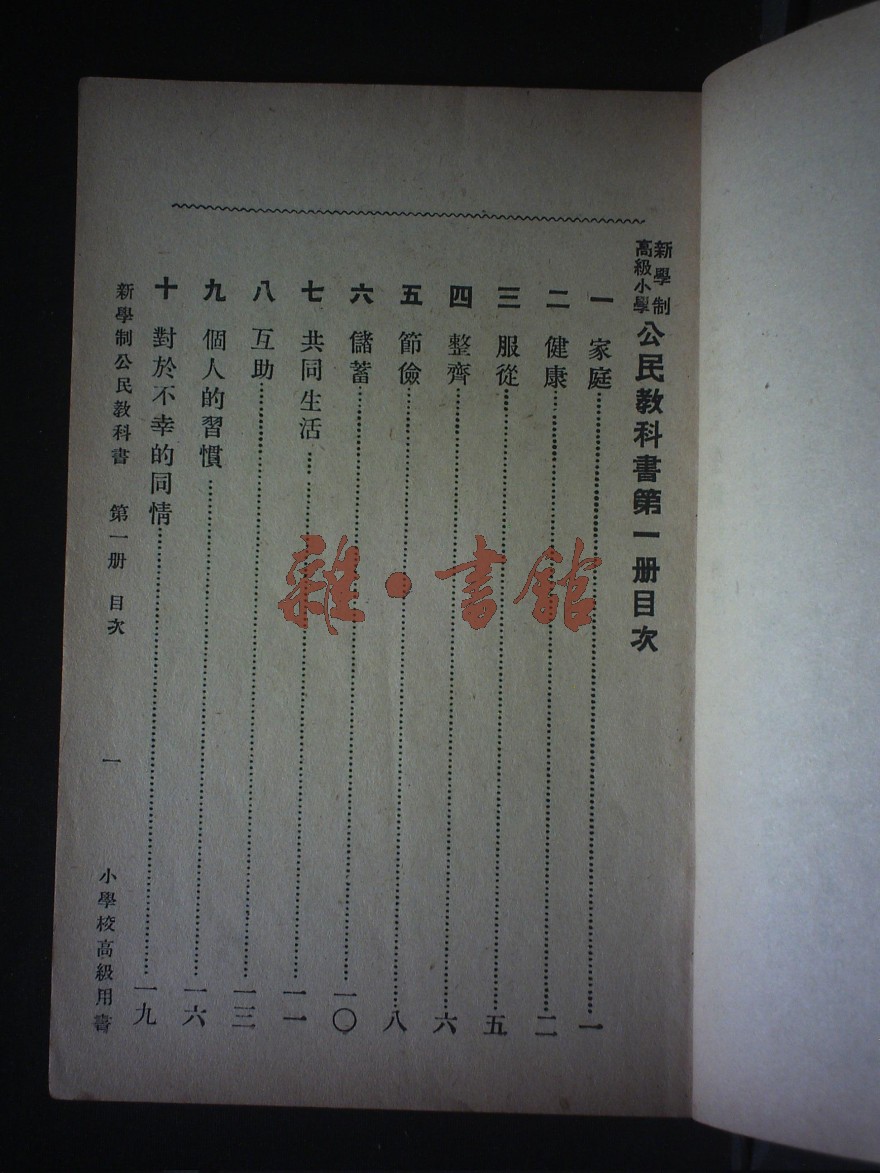 新學制
高級小學
公民教科書第一册目次
一 家庭……一
二 健康……二
三 服從……五
四 整齊……六
五 節儉……八
六 儲蓄……一〇
七 共同生活……一一
八 互助……一三
九 個人的習慣……一六
十 對於不幸的同情……一九
新學制公民教科書 第一册 目次 一 小學校高級用書
雜·書館